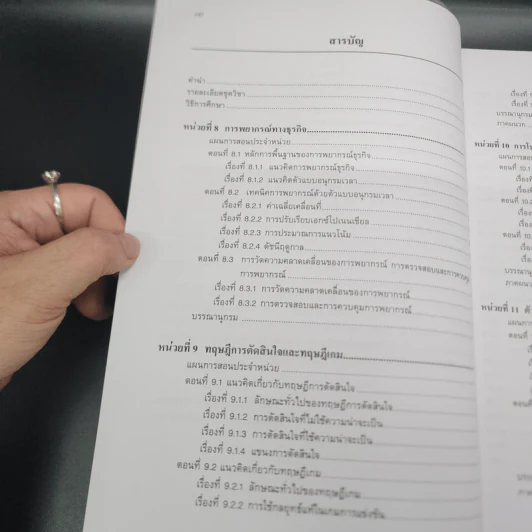 สารบัญ
คำนำ
รายละเอียดชุดวิชา
วิธีการศึกษา
หน่วยที่ 8 การพยากรณ์ทางธุรกิจ
แผนการสอนประจำหน่วย
ตอนที่ 8.1 หลักการพื้นฐานของการพยากรณ์ธุรกิจ
เรื่องที่ 8.1.1 แนวคิดการพยากรณ์ธุรกิจ
เรื่องที่ 8.1.2 แนวคิดตัวแบบอนุกรมเวลา
ตอนที่ 8.2 เทคนิคการพยากรณ์ด้วยตัวแบบอนุกรมเวลา
เรื่องที่ 8.2.1 ค่าเฉลี่ยเคลื่อนที่
เรื่องที่ 8.2.2 การปรับเรียบเอกซ์โปเนนเชียล
เรื่องที่ 8.2.3 การประมาณการแนวโน้ม
เรื่องที่ 8.2.4 ดัชนีฤดูกาล
ตอนที่ 8.3 การวัดความคลาดเคลื่อนของการพยากรณ์ การตรวจสอบและการควบคุม
การพยากรณ์
เรื่องที่ 8.3.1 การวัดความคลาดเคลื่อนของการพยากรณ์
เรื่องที่ 8.3.2 การตรวจสอบและการควบคุมการพยากรณ์
บรรณานุกรม
หน่วยที่ 9 ทฤษฎีการตัดสินใจและทฤษฎีเกม
แผนการสอนประจำหน่วย
ตอนที่ 9.1 แนวคิดเกี่ยวกับทฤษฎีการตัดสินใจ
เรื่องที่ 9.1.1 ลักษณะทั่วไปของทฤษฎีการตัดสินใจ
เรื่องที่ 9.1.2 การตัดสินใจที่ไม่ใช้ความน่าจะเป็น
เรื่องที่ 9.1.3 การตัดสินใจที่ใช้ความน่าจะเป็น
เรื่องที่ 9.1.4 แขนงการตัดสินใจ
ตอนที่ 9.2 แนวคิดเกี่ยวกับทฤษฎีเกม
เรื่องที่ 9.2.1 ลักษณะทั่วไปของทฤษฎีเกม
เรื่องที่ 9.2.2 การใช้กลยุทธ์แท้ในเกมการแข่งขัน
เรื่องที่
บรรณานุกรม
ภาคผนวก
หน่วยที่ 10
แผนการสอน
ตอนที่ 10.1
เรื่องที่
เรื่องที่
ตอนที่ 10.2
เรื่องที่
เรื่องที่
บรรณานุกรม
ภาคผนวก
หน่วยที่ 11
แผนการสอน